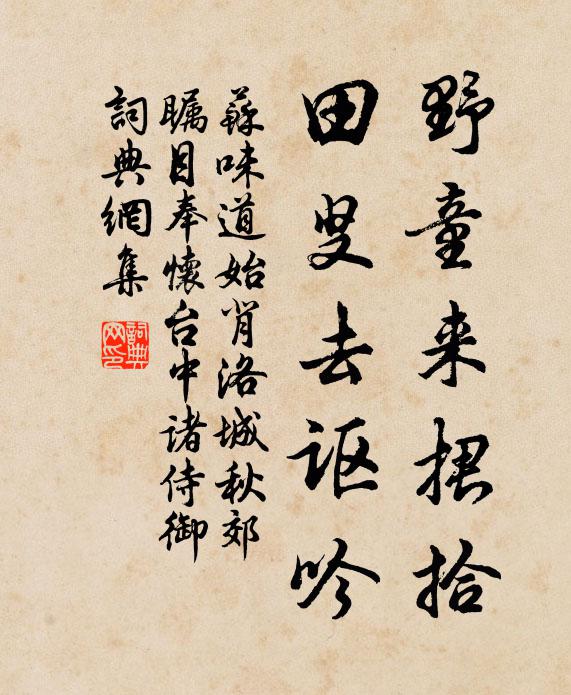 野童来捃拾
田叟去讴吟
蘇味道始肖洛城秋郊
瞩目奉懷台中诸侍御
詞典網集
詞典网印